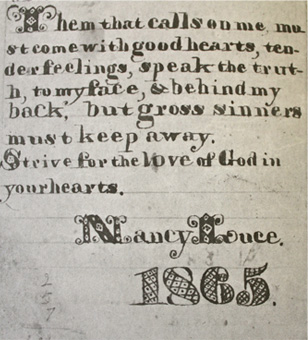 Them that calls on me, mu
st come with good hearts, ten-
der feelings, speak the trut-
h, to my face, & behind my
back, but gross sinners
must keep away.
Strive for the love of God in
your hearts.
Nancy Luce.
1865.